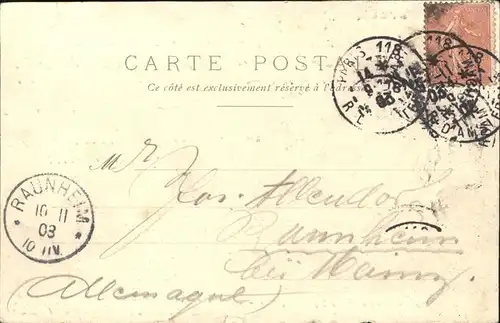 CARTE POSTALE
Ce côté est exclusivement réservé à l'adresse
PARIS 118
RAUNHEIM
10 11
03
Mr
Jos. Allendorf
Raunheim
bei Mainz
(Allemagne)